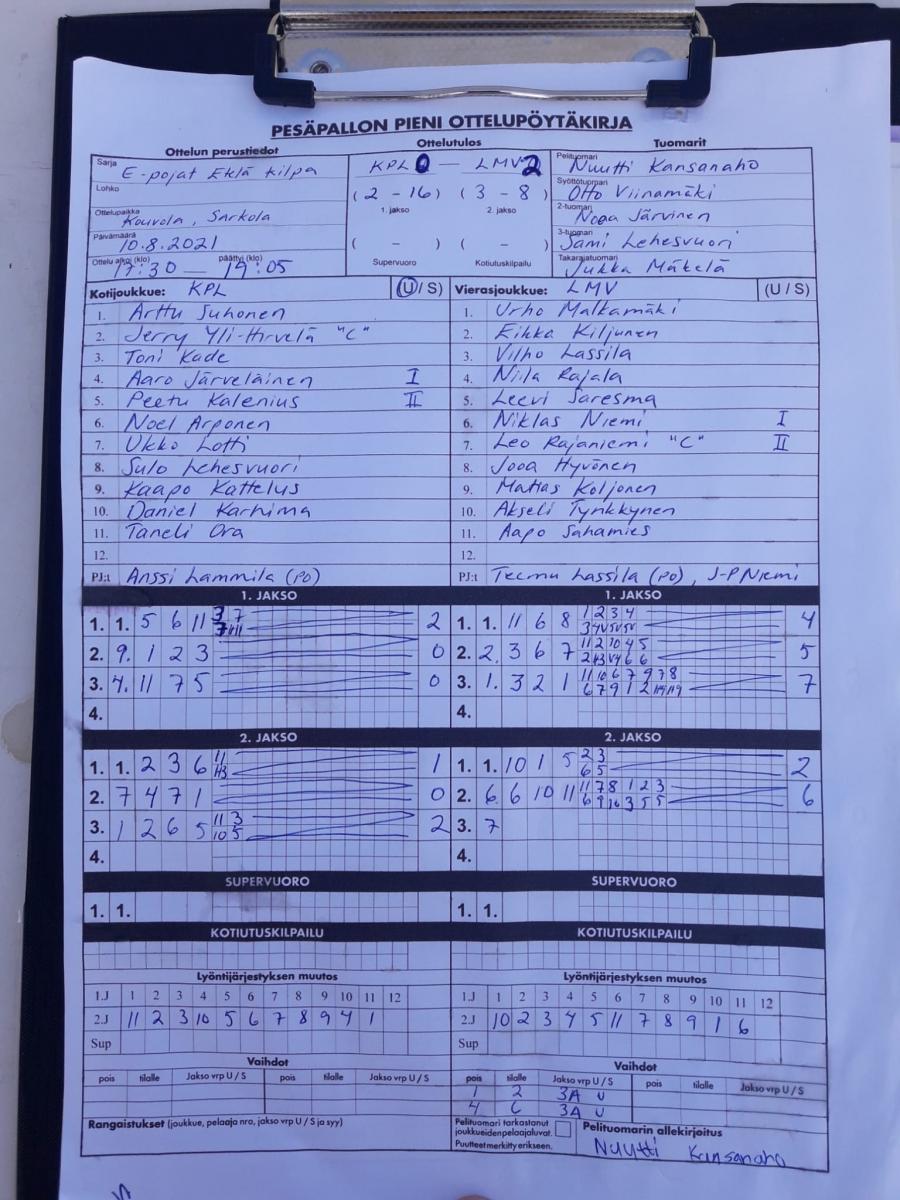 PESÄPALLON PIENI OTTELUPÖYTÄKIRJA
Ottelun perustiedot
Sarja E-pojat Eklä kilpa
Lohko
Ottelupaikka Kouvola, Sarkola
Päivämäärä 10.8.2021
Ottelu alkoi (klo) 17:30 — päättyi (klo) 19:05
Ottelutulos
KPL 0 — LMV 2
(2 - 16) (3 - 8)
1. jakso 2. jakso
( - ) ( - )
Supervuoro Kotiutuskilpailu
Tuomarit
Pelituomari Nuutti Kansanaho
Syöttötuomari Otto Viinamäki
2-tuomari Nooa Järvinen
3-tuomari Sami Lehesvuori
Takarajatuomari Jukka Mäkelä
Kotijoukkue: KPL (U / S)
1. Arttu Suhonen
2. Jerry Yli-Hirvelä "C"
3. Toni Kade
4. Aaro Järveläinen I
5. Peetu Kalenius II
6. Noel Arponen
7. Ukko Lotti
8. Sulo Lehesvuori
9. Kaapo Kattelus
10. Daniel Karhima
11. Taneli Ora
12.
PJ:t Anssi Lammila (PO)
Vierasjoukkue: LMV (U / S)
1. Urho Malkamäki
2. Eikka Kiljunen
3. Vilho Lassila
4. Niila Rajala
5. Leevi Saresma
6. Niklas Niemi I
7. Leo Rajaniemi "C" II
8. Jooa Hyvönen
9. Matias Koljonen
10. Akseli Tynkkynen
11. Aapo Sahamies
12.
PJ:t Teemu Lassila (PO), J-P Niemi
1. JAKSO
1. 1. 5 6 11 3 7 2
2. 9. 1 2 3 0
3. 4. 11 7 5 0
4.
1. JAKSO
1. 1. 11 6 8 1 2 3 4 4
2. 2. 3 6 7 11 2 10 4 5 5
3. 1. 3 2 1 11 10 6 7 9 7 8 7
4.
2. JAKSO
1. 1. 2 3 6 11 1
2. 7 4 7 1 0
3. 1 2 6 5 11 3 2
10 5
4.
2. JAKSO
1. 1. 10 1 5 2 3 2
6 5
2. 6. 6 10 11 11 7 8 1 2 3 6
6 9 10 3 5 5
3. 7
4.
SUPERVUORO
1. 1.
SUPERVUORO
1. 1.
KOTIUTUSKILPAILU
KOTIUTUSKILPAILU
Lyöntijärjestyksen muutos
1.J 1 2 3 4 5 6 7 8 9 10 11 12
2.J 11 2 3 10 5 6 7 8 9 4 1
Sup
Lyöntijärjestyksen muutos
1.J 1 2 3 4 5 6 7 8 9 10 11 12
2.J 10 2 3 4 5 11 7 8 9 1 6
Vaihdot
pois tilalle Jakso vrp U / S pois tilalle Jakso vrp U / S
Vaihdot
pois tilalle Jakso vrp U / S pois tilalle Jakso vrp U / S
1 2 3A U
4 6 3A U
Rangaistukset (joukkue, pelaaja nro, jakso vrp U / S ja syy)
Pelituomari tarkastanut
joukkueiden pelaajaluvat.
Puutteet merkitty erikseen.
Pelituomarin allekirjoitus
Nuutti Kansanaho